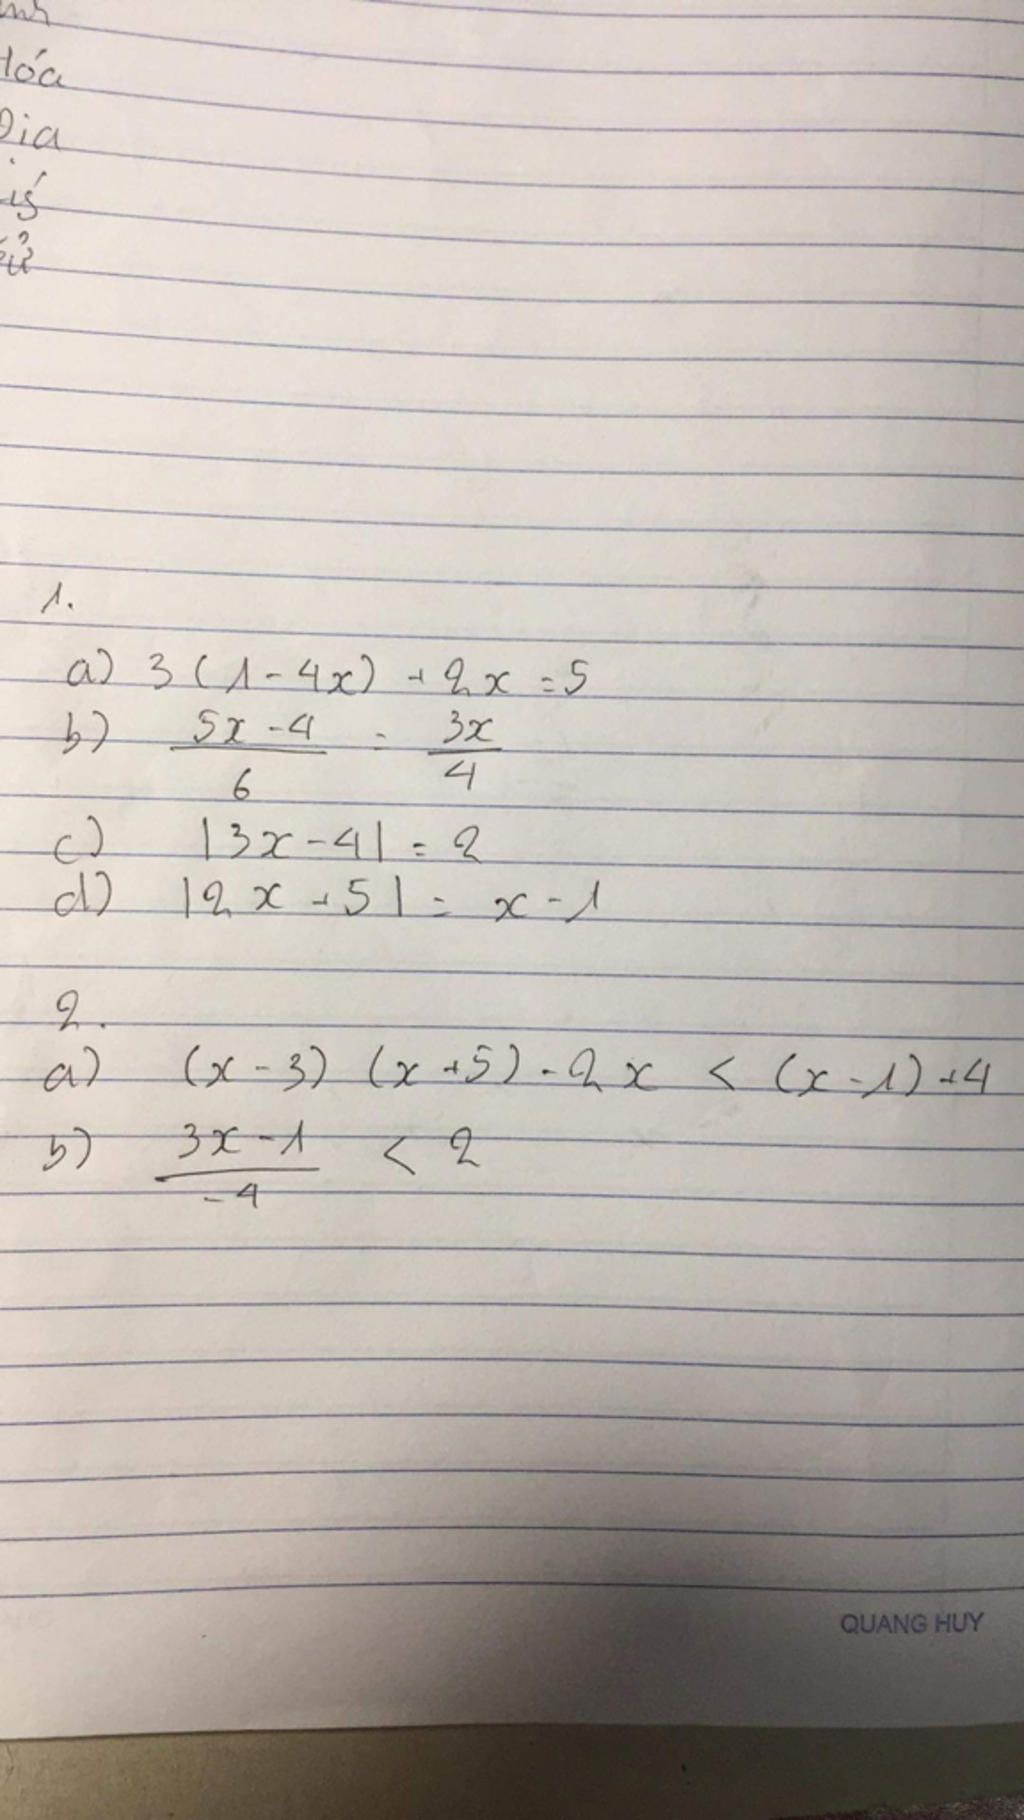 Hóa
Địa
1.
a) 3(1-4x)+2x=5
b) \frac{5x-4}{6} = \frac{3x}{4}
c) |3x-4|=2
d) |2x+5|= x-1
2.
a) (x-3)(x+5)-2x < (x-1)+4
b) \frac{3x-1}{-4} < 2
QUANG HUY